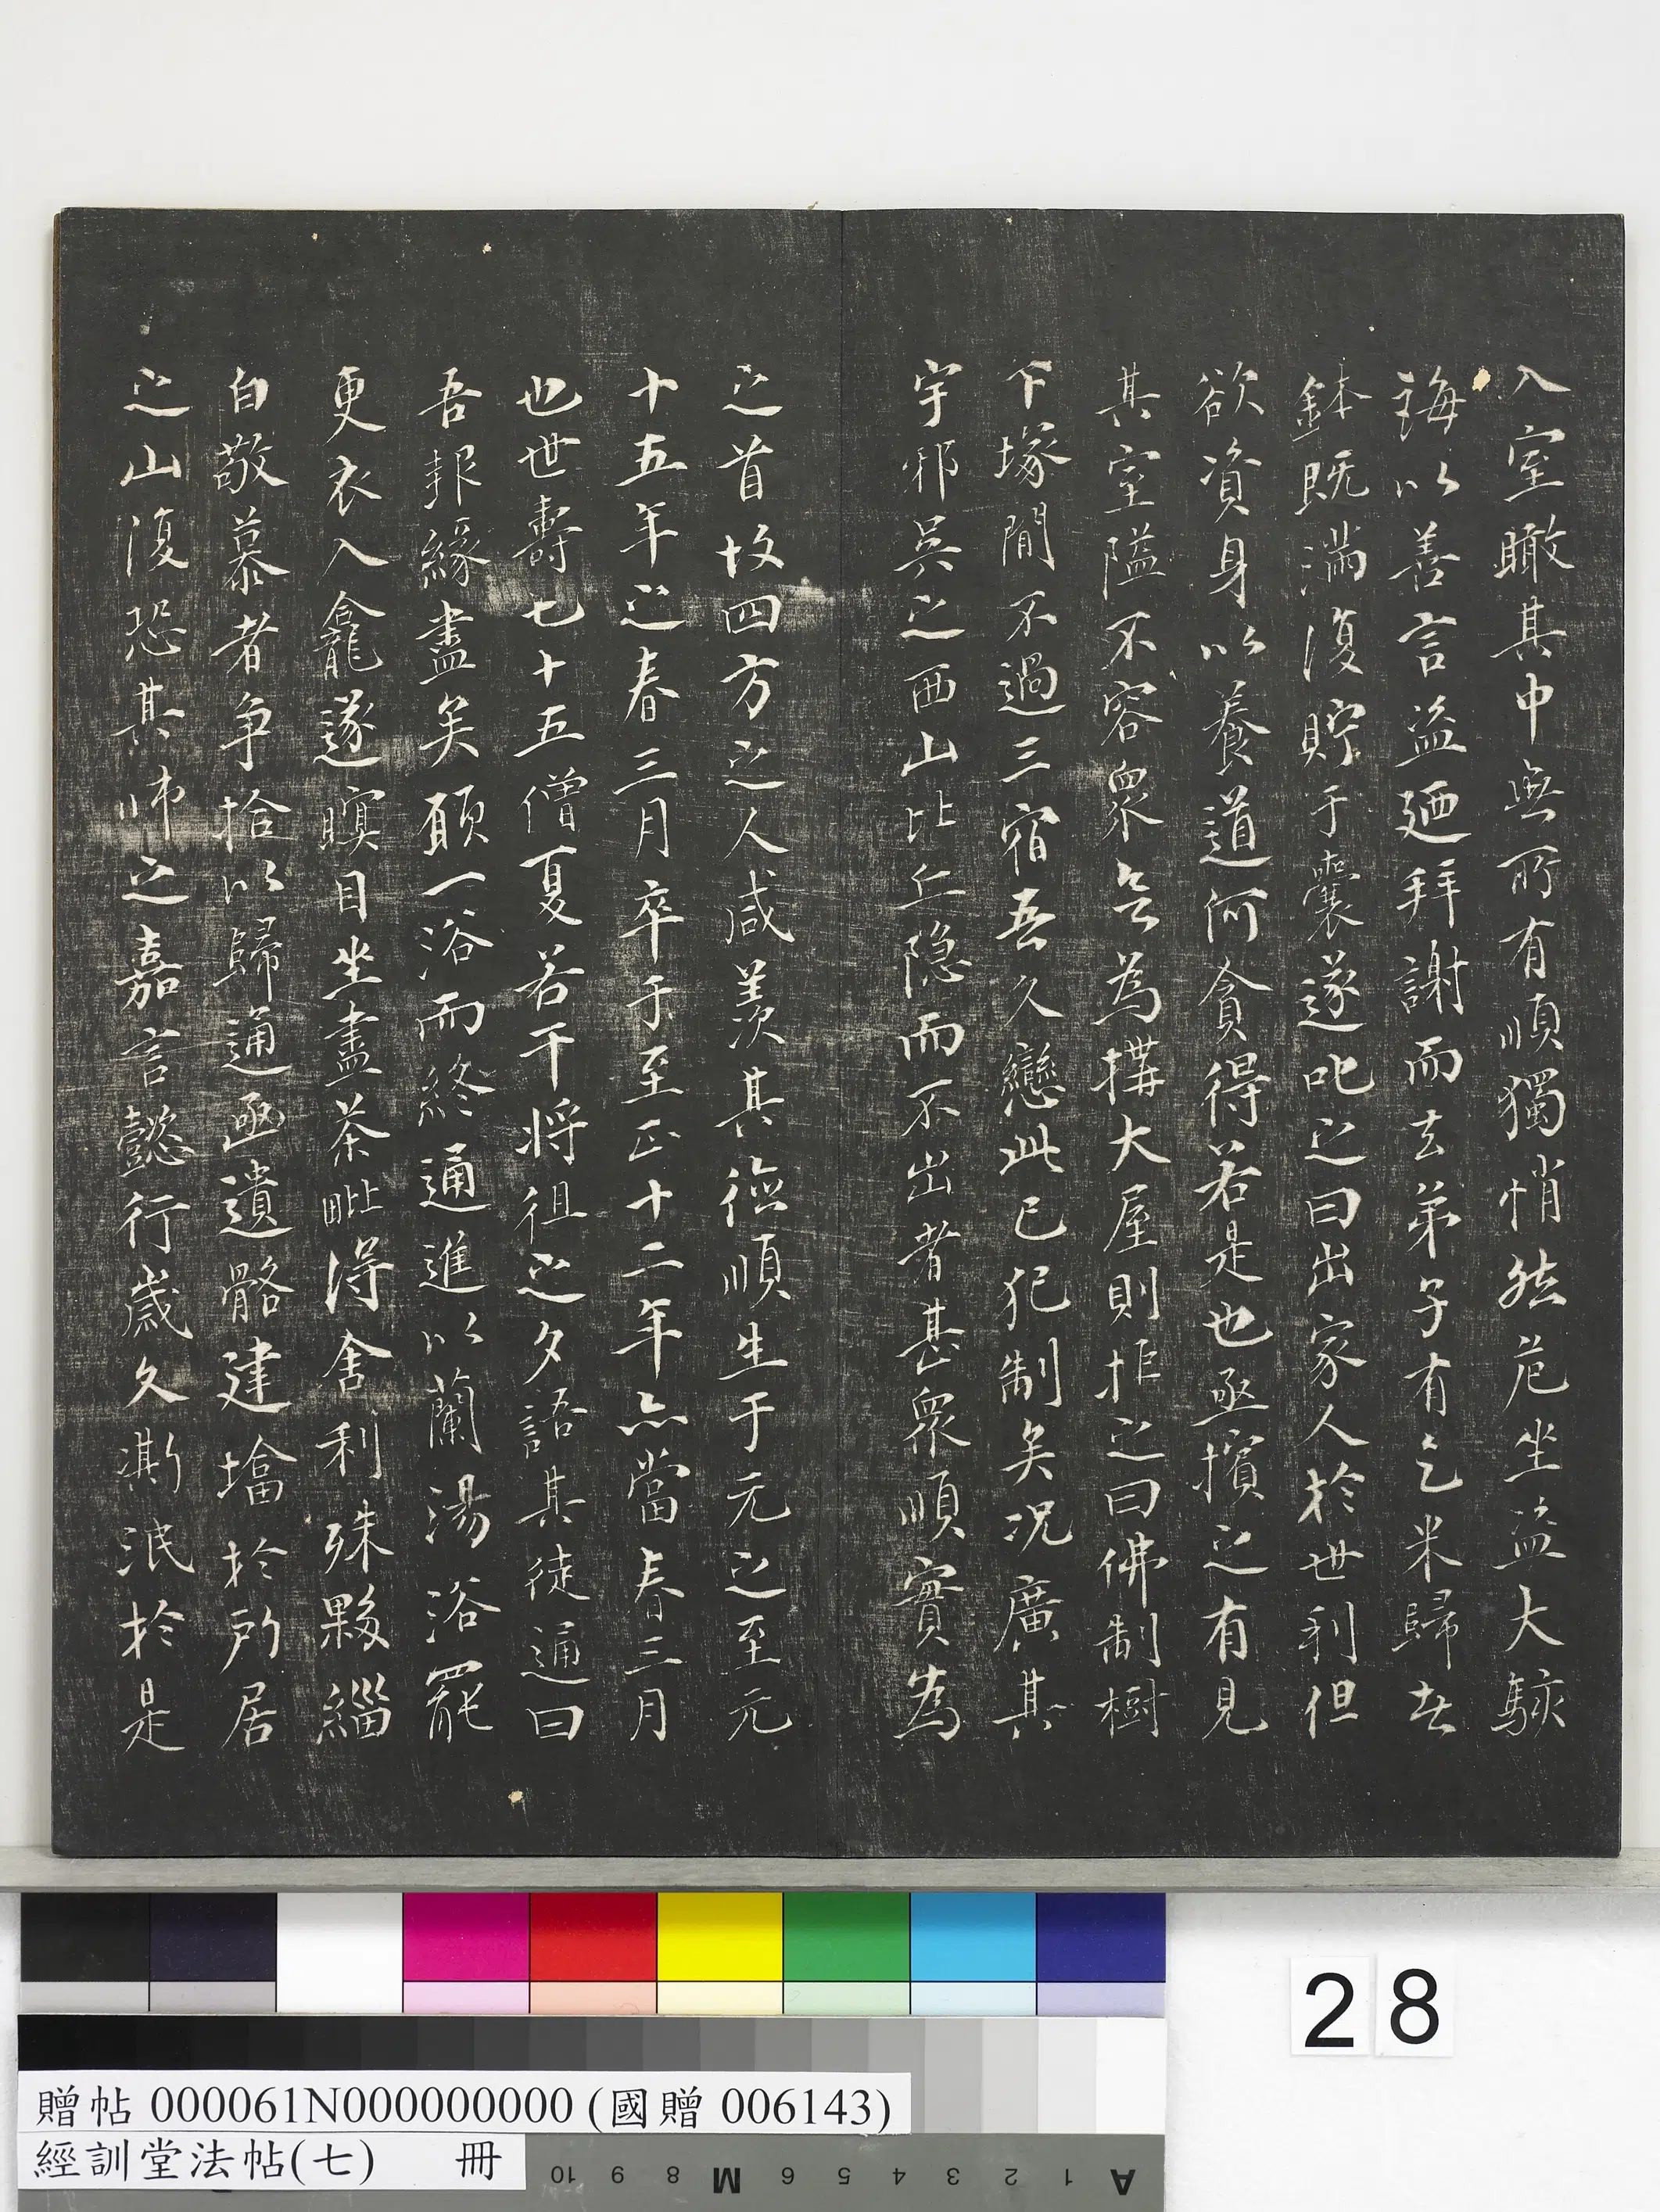 入室瞰其中無所有順獨悄然危坐盜大駭
誨以善言盜廼拜謝而去弟子有乞米歸者
鉢既滿復貯于囊遂叱之曰出家人於世利但
欲資身以養道何貪得若是也亟擯之有見
其室隘不容衆欲為搆大屋則拒之曰佛制樹
下塚間不過三宿吾久戀此已犯制矣況廣其
宇邪吳之西山比丘隐而不出者甚衆順實為
之首故四方之人咸羨其德順生于元之至元
十五年之春三月卒于至正十二年亦當春三月
也世壽七十五僧夏若干將徂之夕語其徒通曰
吾報緣盡矣願一浴而終通進以蘭湯浴罷
更衣入龕遂瞑目坐盡荼毗得舍利殊夥緇
白敬慕者争拾以歸通函遺骼建塔於所居
之山復恐其師之嘉言懿行歲久澌泯於是
28
贈帖 000061N000000000 (國贈 006143)
經訓堂法帖(七) 冊
10 9 8 M 6 5 4 3 2 1 A